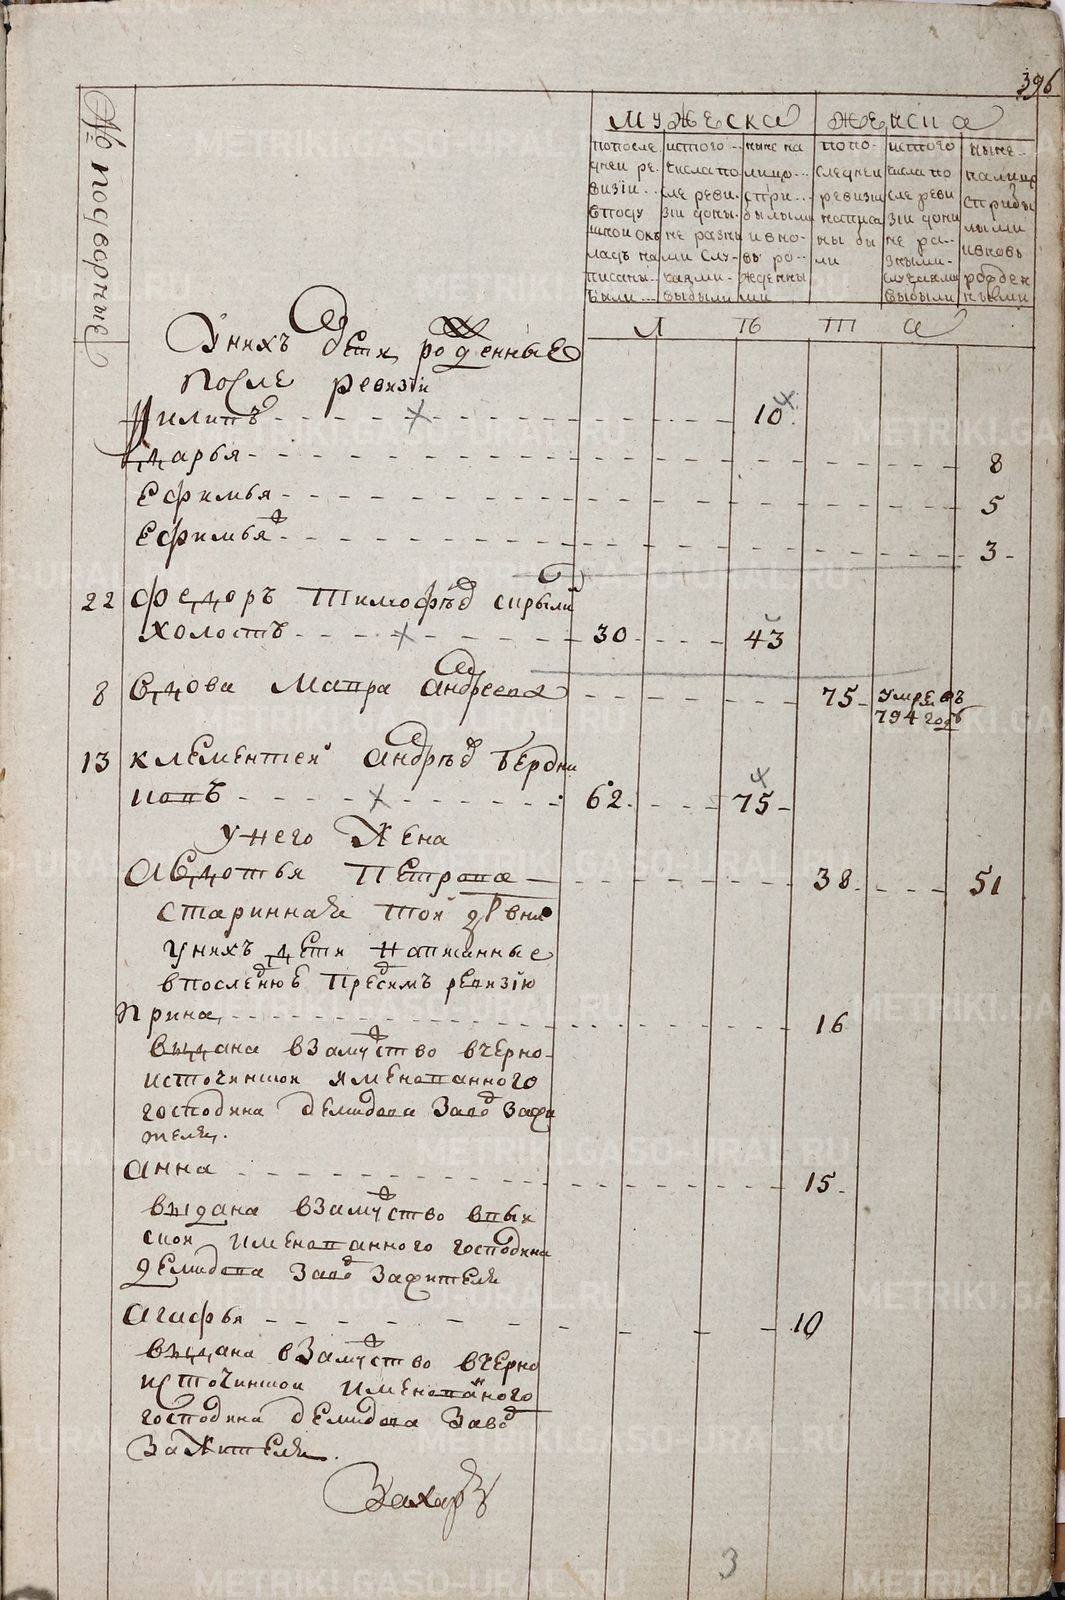 396
№ подворные
мужеска
женска
попосле
дней ре
визiи
вподу
шной окъ
ладъ на
писаны
были
истого
числа по
сле реви
зiи доны
не разны
ми слу
чаями
выбыли
ныне на
лицо
спри
былыми
ивно
въ ро
жденны
ми
попо
следней
ревизiи
написа
ны бы
ли
истого
числа по
сле реви
зiи доны
не ра
зными
случаями
выбыли
ныне
налицо
справы
лыми
ивновь
рожден
ными
л ѣ т а
Унихъ дети рожденные
после ревизiи
Филипъ 10
Дарья 8
Ефимья 5
Ефимья 3
22 Федоръ Тимофѣев
холостъ 30 43
8 Вдова Мавра Андреева 75 умре въ
794 годѣ
13 Клементей Андрѣев Бердни
ковъ 62 75
унего жена
Авдотья Петрова 38 51
стариннаяж той дрвни
унихъ дети написанные
впоследнюю пред симъ ревизiю
Ирина 16
выдана взамуство вчерно
источинской имянованного
господина демидова завод зажи
теля
Анна 15
выдана взамуство впын
ской имянованного господина
демидова завод зажителя
Агафья 10
выдана взамуство вчерно
источинской имянованного
господина демидова завод
зажителя
Захаръ
3
METRIKI.GASO-URAL.RU